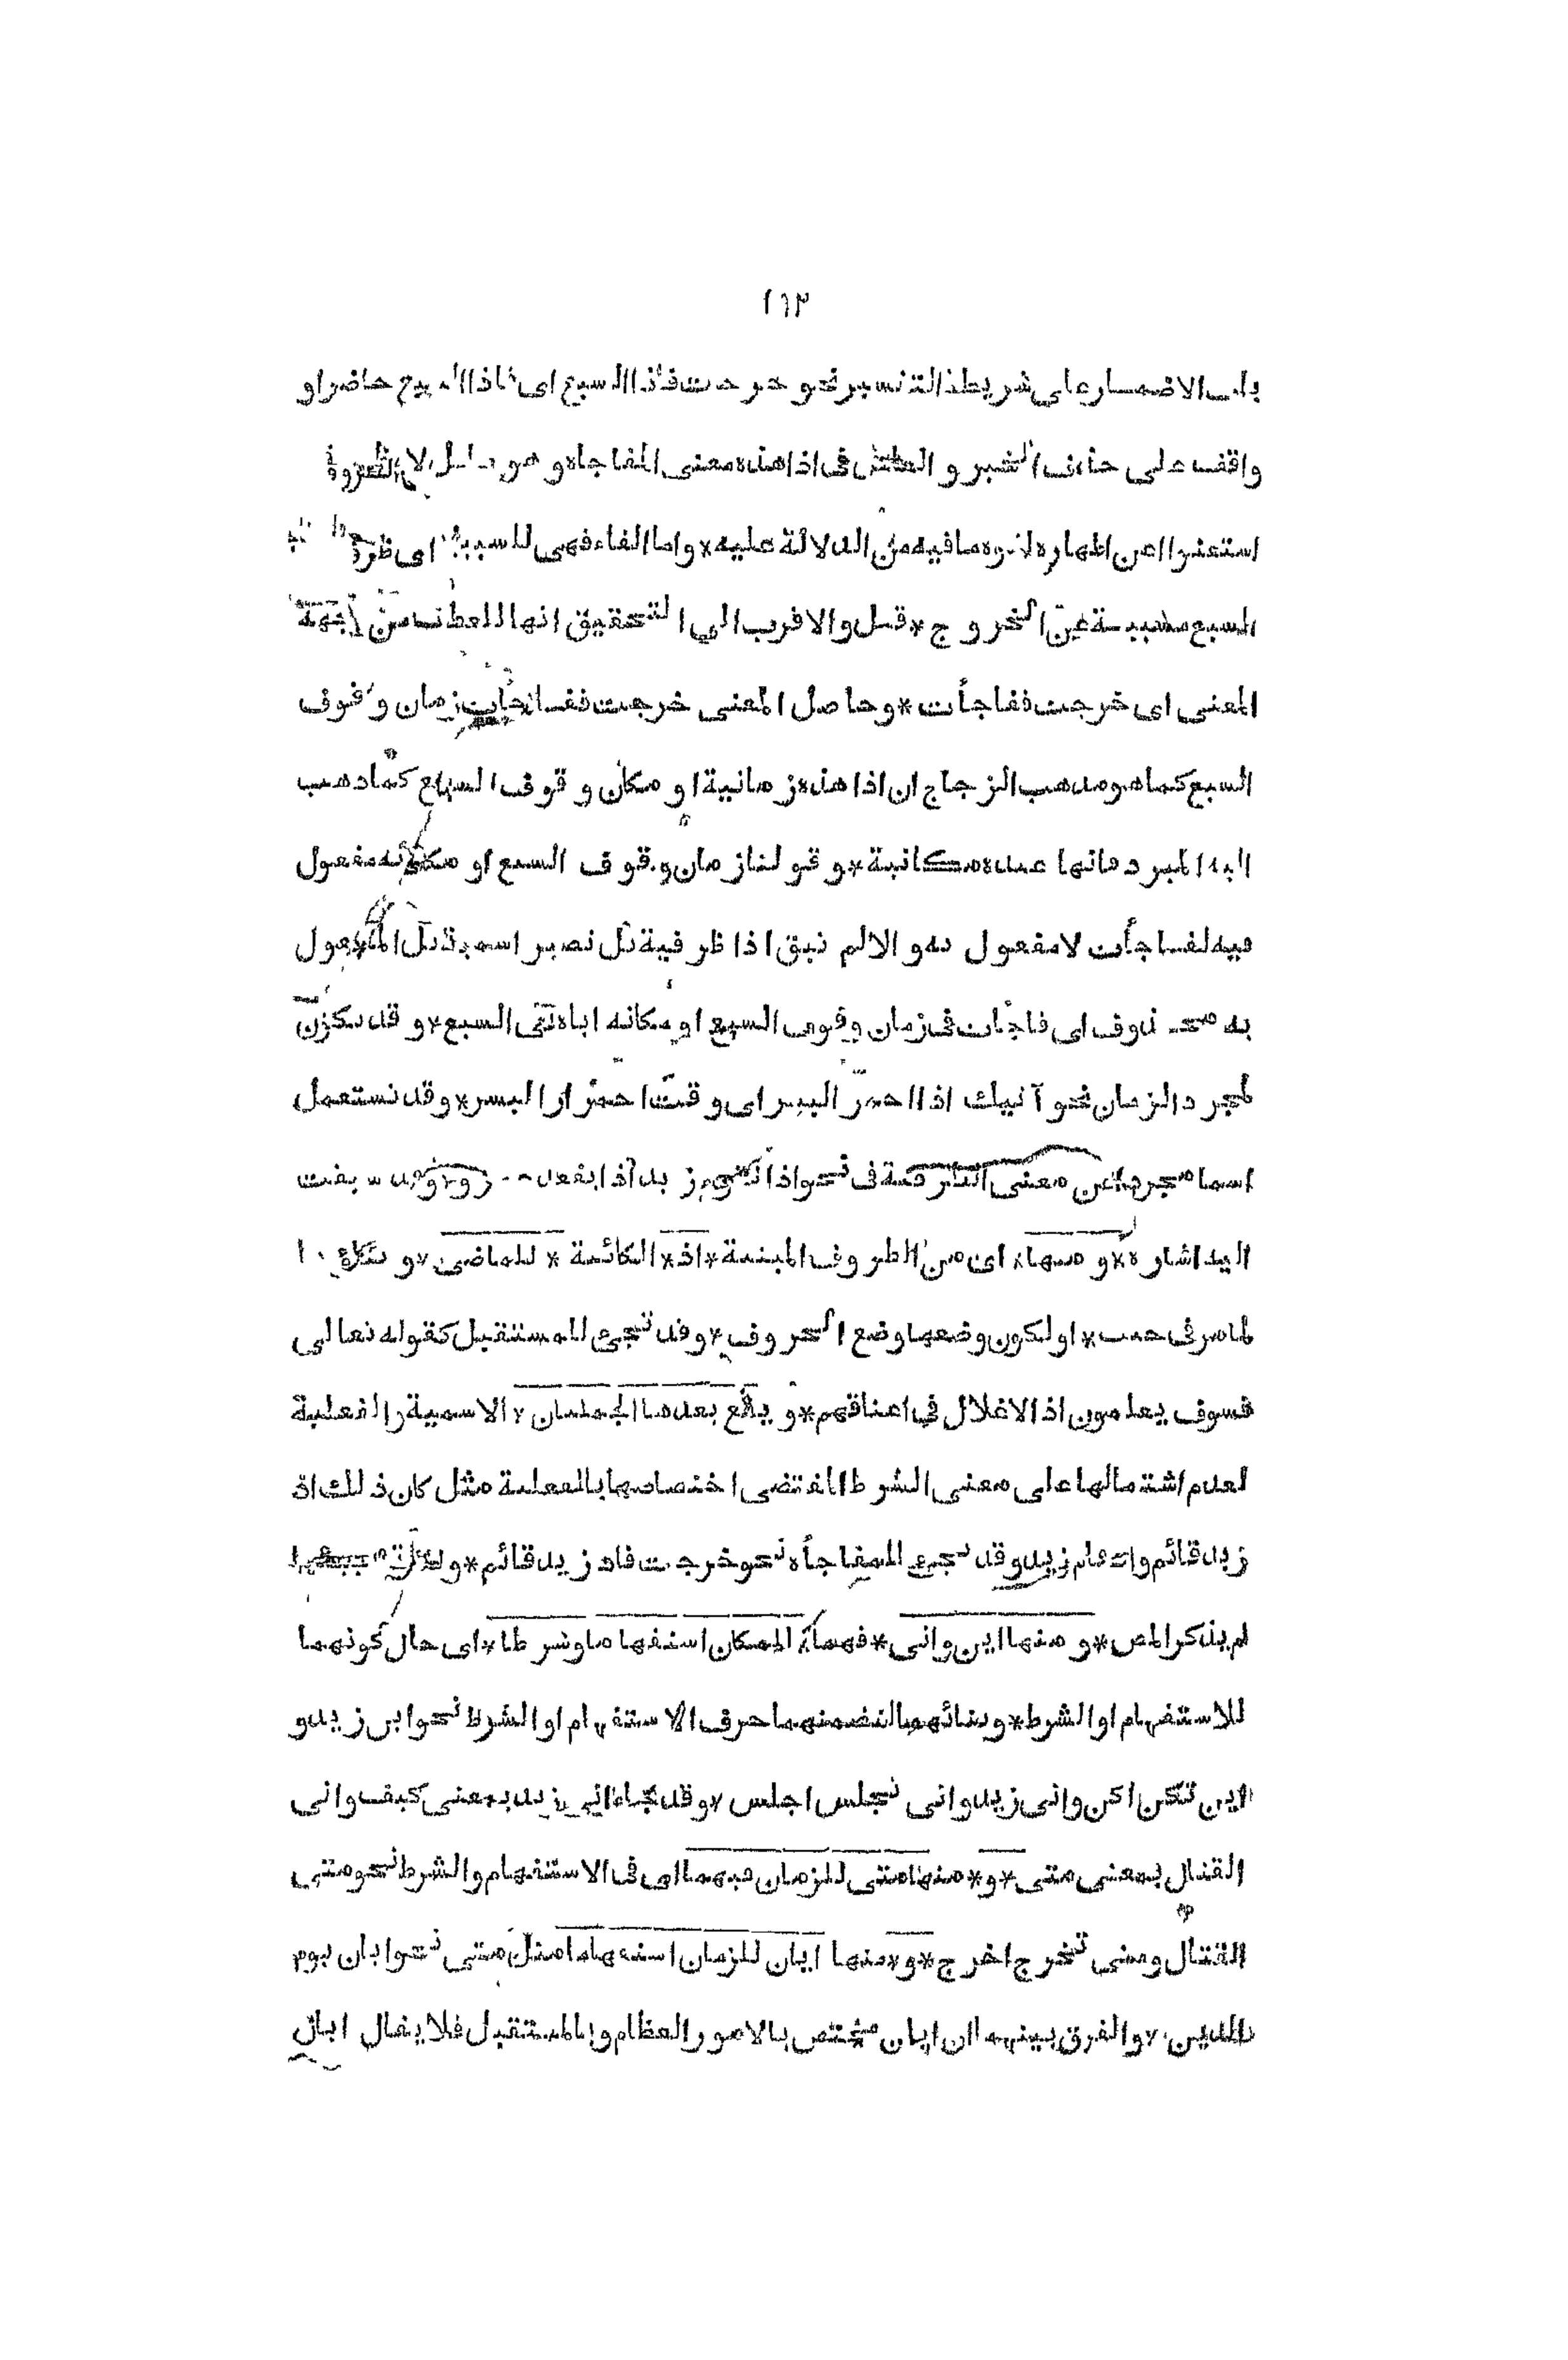 ١٦٣
باب الاضمار على شريطة التفسير نحو خرجت فاذا السبع اى فاذا السبع حاضر او
واقف على حذف الخبر و العامل فى اذا هذه معنى المفاجاة و هو عامل لا يظهر
استغنوا عن اظهاره لقوة ما فيه من الدلالة عليه * و اما الفاء فهى للسببية
السبع مسببة عن الخروج * قيل و الاقرب الى التحقيق انها للعطف من جهة
المعنى اى خرجت ففاجأت * و حاصل المعنى خرجت ففاجأت زمان وقوف
السبع كما هو مذهب الزجاج ان اذا هذه زمانية او مكان وقوف السبع كما ذهب
اليه المبرد فانها عنده مكانية * و قولنا زمان وقوف السبع او مكانه مفعول
فيه لفاجأت لا مفعول به و الا لم تبق اذا ظرفية بل تصير اسمية بل المفعول
به محذوف اى فاجأت فى زمان وقوف السبع او مكانه اياه اى السبع * و قد تكون
لمجرد الزمان نحو آتيك اذا احمر البسر اى وقت احمرار البسر * و قد تستعمل
اسما مجردا عن معنى الظرفية فى نحو اذا يقوم زيد اذا يقعد سبقت
اليه اشارة * و منها * اى من الظروف المبنية * اذ * الكائنة * للماضى * و
لما مر فى حيث * او لكون وضعها وضع الحروف * و قد تجىء للمستقبل كقوله تعالى
فسوف يعلمون اذ الاغلال فى اعناقهم * و يقع بعدها الجملتان * الاسمية و الفعلية
لعدم اشتمالها على معنى الشرط المقتضى اختصاصها بالفعلية مثل كان ذلك اذ
زيد قائم و اذ قام زيد و قد تجىء للمفاجأة نحو خرجت فاذ زيد قائم *
لم يذكر المص * و منها اين و انى * فهما * للمكان استفهاما و شرطا * اى حال كونهما
للاستفهام او الشرط * و بنائهما لتضمنهما حرف الاستفهام او الشرط نحو اين زيد و
اين تكن اكن و انى زيد و انى تجلس اجلس * و قد جاء انى زيد بمعنى كيف و انى
القتال بمعنى متى * و * منها متى للزمان فيهما اى فى الاستفهام و الشرط نحو متى
القتال و متى تخرج اخرج * و * منها ايان للزمان استفهاما مثل متى نحو ايان يوم
الدين * و الفرق بينهما ان ايان مختص بالامور العظام و بالمستقبل فلا يقال ايان